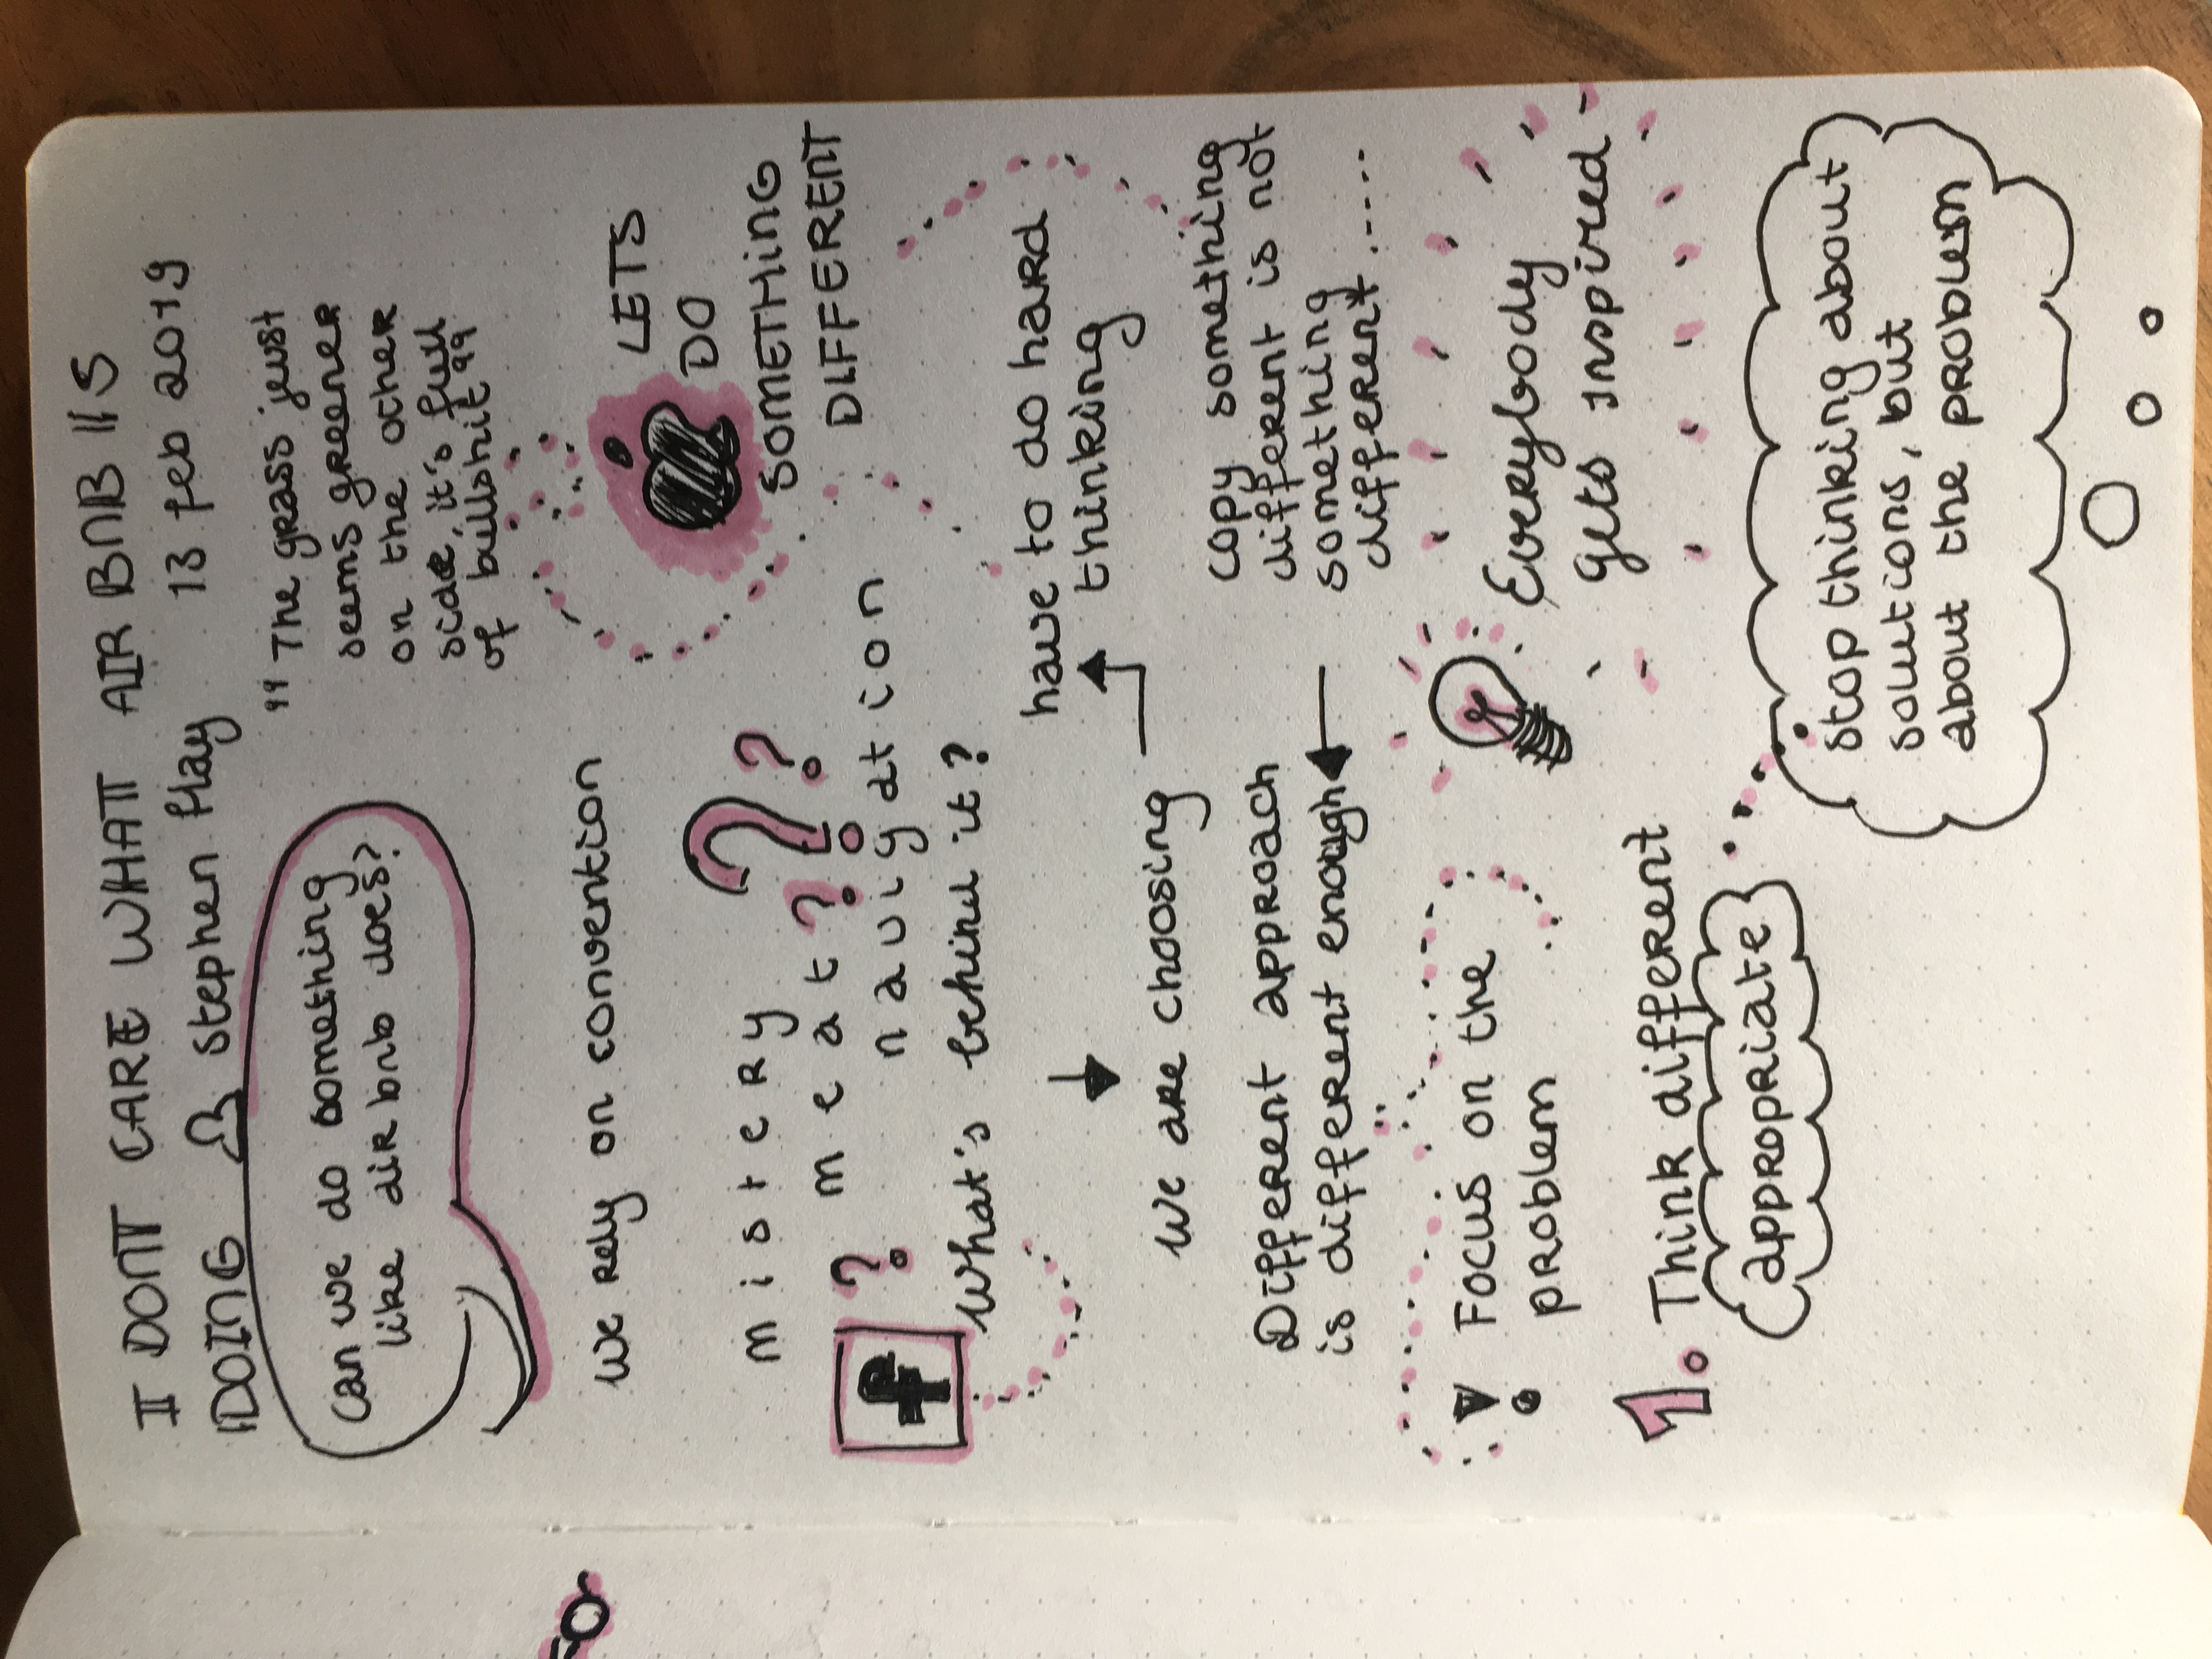 I DONT CARE WHAT AIRBNB IS
DOING Stephen Hay 13 feb 2019
Can we do something
like airbnb does?
"The grass jeust
seems greener
on the other
side, it's full
of bullshit"
We rely on convention
LETS
DO
SOMETHING
DIFFERENT
mistery
meat???
navigation
f ?
What's behind it?
have to do hard
thinking
We are choosing
copy something
different is not
something
different.----
Different approach
is different enough
! Focus on the
problem
Everybody
gets inspired
1. Think different
appropriate
stop thinking about
solutions, but
about the problem